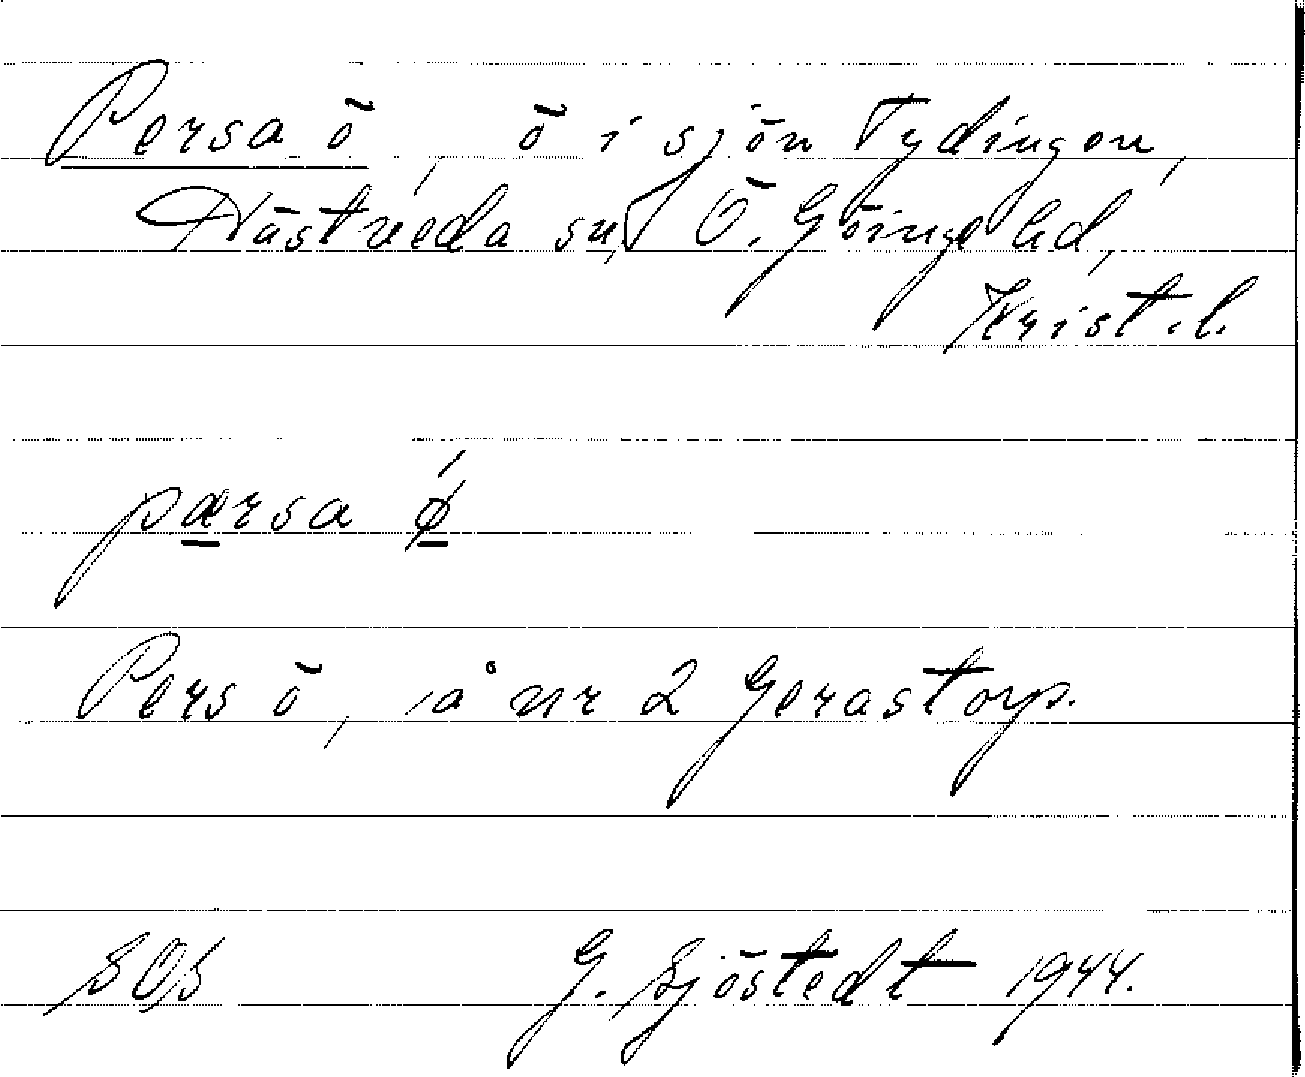 Persa ö, ö i sjön Tydingen,
Västrieda sn, Ö. Göinge hd,
Krist. l.
pærsa ǿ
Pers ö, å nr 2 Gerastorp.
SOS G. Sjöstedt 1944.